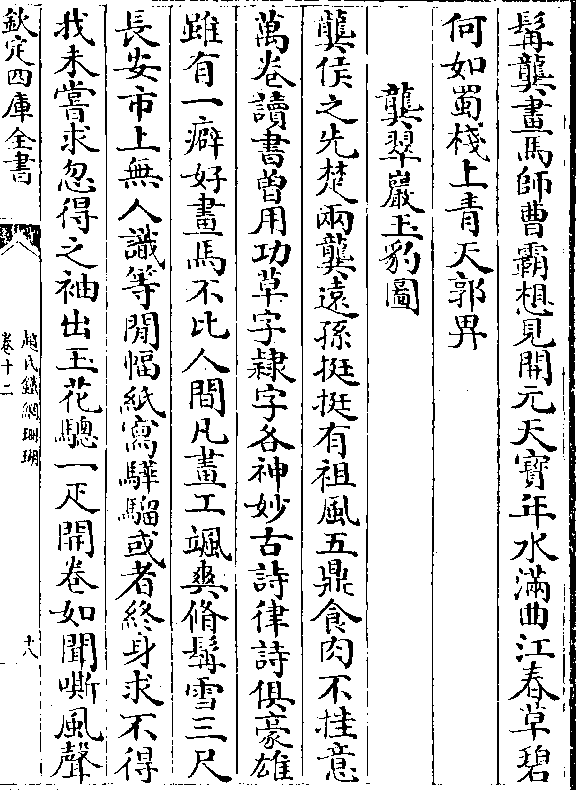 髯龔畫馬師曹霸想見開元天寶年水滿曲江春草碧
何如蜀棧上青天郭畀
龔翠巖玉豹圖
龔侯之先楚兩龔遠孫挺挺有祖風五鼎食肉不挂意
萬卷讀書曽用功草字隷字各神妙古詩律詩俱豪雄
雖有一癖好畫馬不比人間凡畫工颯爽脩髯雪三尺
長安市上無人識等閒幅紙寫驊騮或者終身求不得
我未嘗求忽得之袖出玉花驄一疋開卷如聞嘶風聲
欽定四庫全書
趙氏鐵網珊瑚
卷十二
十八